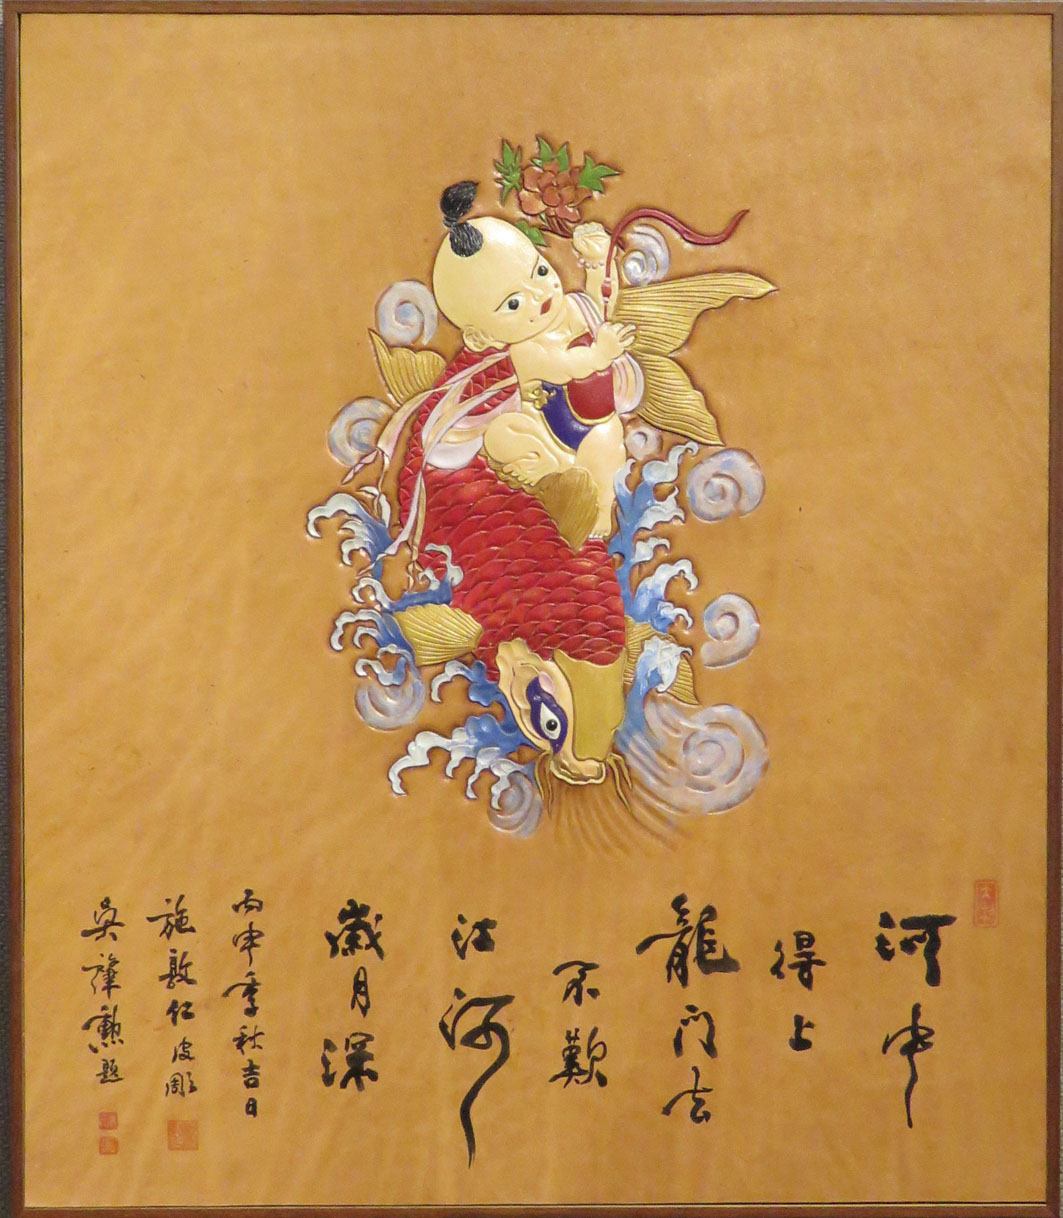 河中
得上
龍門去
不歎
江河
歲月深
丙申季秋吉日
施敦仁皮雕
吳肇勲題